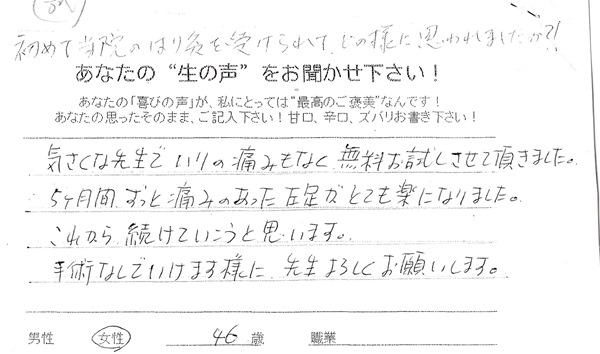 初めて当院のはり灸を受けられて、どの様に思われましたか?!
あなたの“生の声”をお聞かせ下さい！
あなたの「喜びの声」が、私にとっては“最高のご褒美”なんです！
あなたの思ったそのまま、ご記入下さい！甘口、辛口、ズバリお書き下さい！
気さくな先生で いりの痛みもなく 無料お試しさせて頂きました。
5ヶ月間 ずっと痛みのあった 左足が とても楽になりました。
これから 続けていこうと思います。
手術なしでいけます様に 先生よろしくお願いします。
男性 女性 46 歳 職業